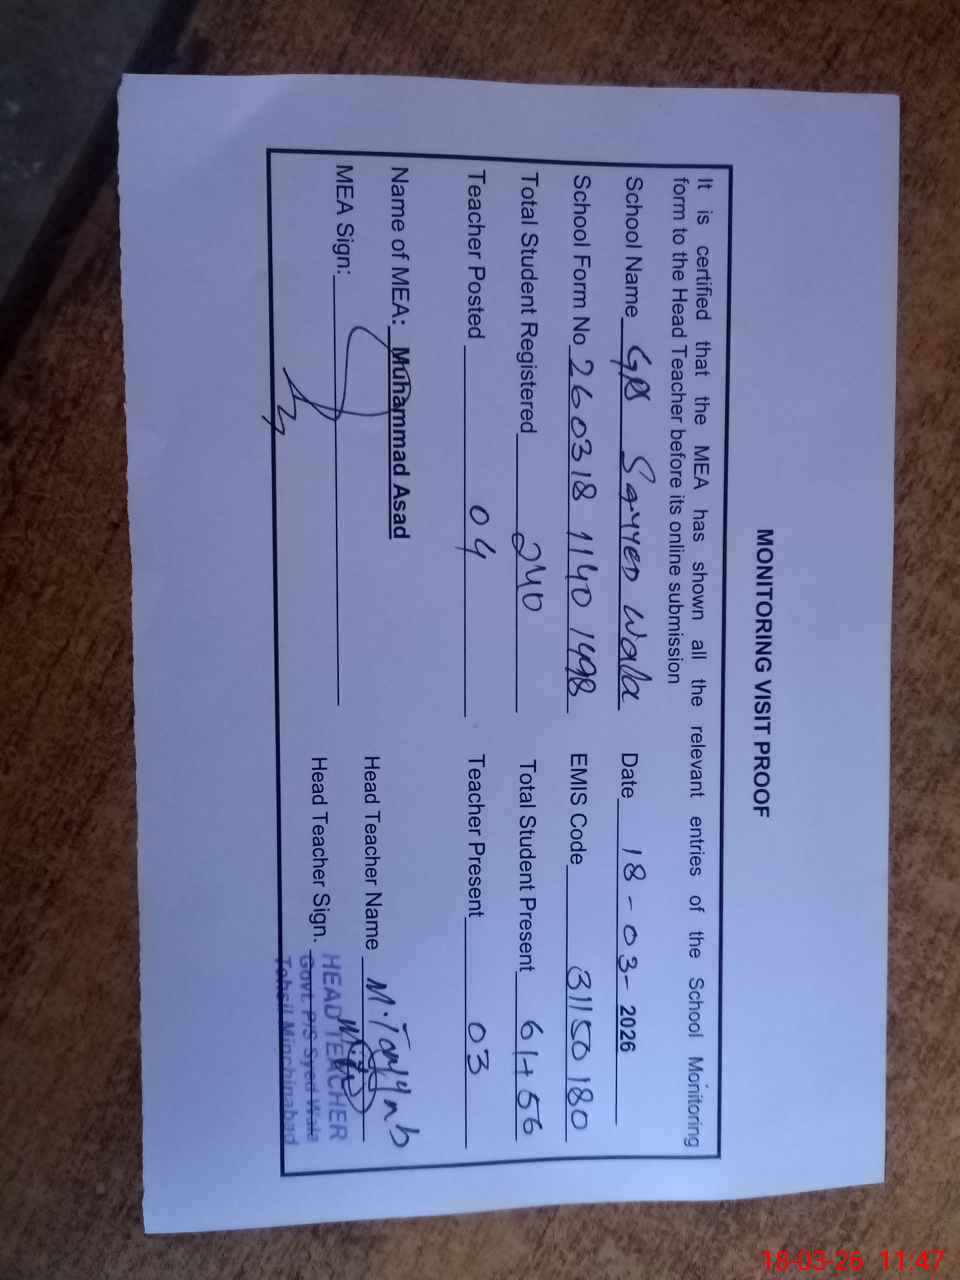 MONITORING VISIT PROOF
It is certified that the MEA has shown all the relevant entries of the School Monitoring
form to the Head Teacher before its online submission
School Name GPS Sayyed Wala Date 18-03-2026
School Form No 260318 1140 1498 EMIS Code 31150180
Total Student Registered 240 Total Student Present 61+56
Teacher Posted 04 Teacher Present 03
Name of MEA: Muhammad Asad
Head Teacher Name M.
MEA Sign:
Head Teacher Sign.
HEAD TEACHER
Govt. P/S Syed Wala
Tehsil Minchinabad
18-03-26 11:47